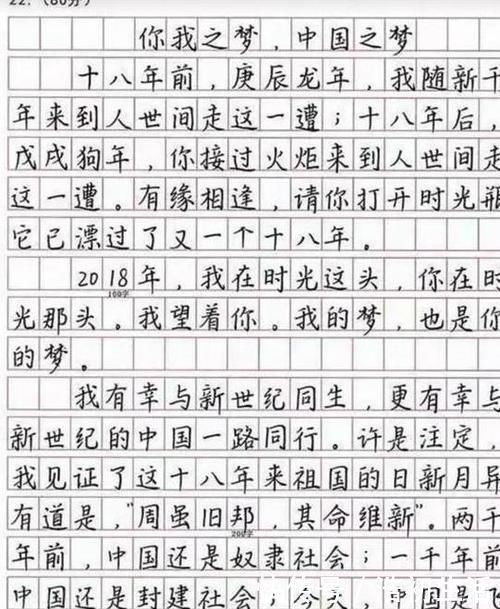 22.（60分）
你我之梦，中国之梦
十八年前，庚辰龙年，我随新千
年来到人世间走这一遭；十八年后，
戊戌狗年，你接过火炬来到人世间走
这一遭。有缘相逢，请你打开时光瓶
它已漂过了又一个十八年。
2018年，我在时光这头，你在时
100字
光那头。我望着你。我的梦，也是你
的梦。
我有幸与新世纪同生，更有幸与
新世纪的中国一路同行。许是注定，
我见证了这十八年来祖国的日新月异
有道是，“周虽旧邦，其命维新”。两千
200字
年前，中国还是奴隶社会；一千年前
中国还是封建社会；今天，中国